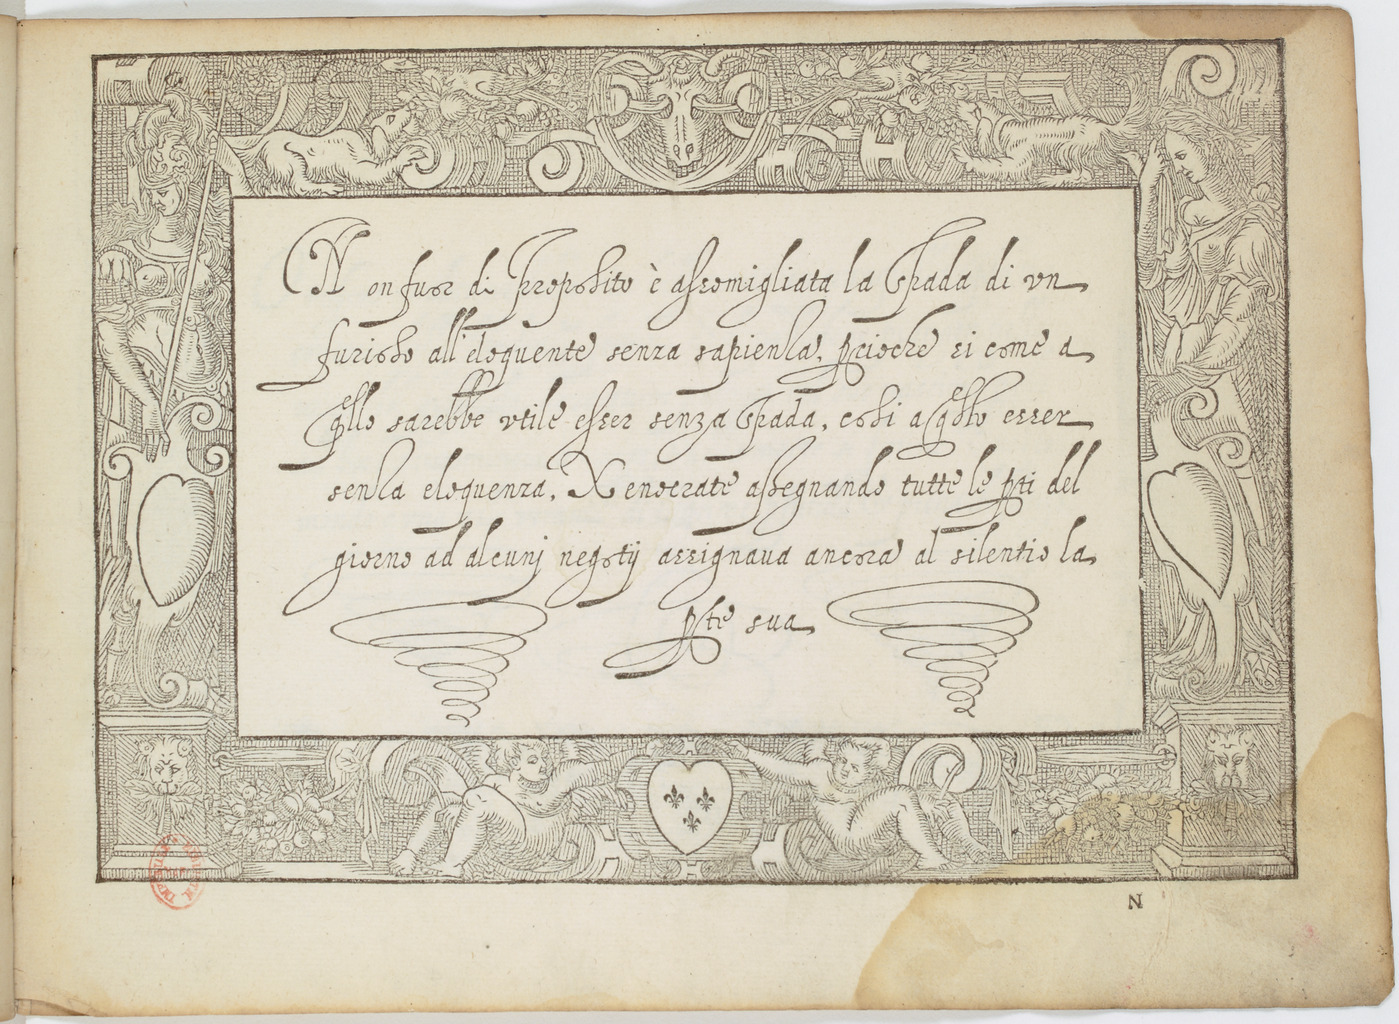 Non fuor di Proposito è assomigliata la Spada di vn
furioso all'eloquente senza sapienza, pcioche si come a
qllo sarebbe vtile esser senza Spada, cosi a qsto esser
senza eloquenza, Xenocrate assegnando tutte le pti del
giorno ad alcunj negotij assignaua ancora al silentio la
pte sua
N